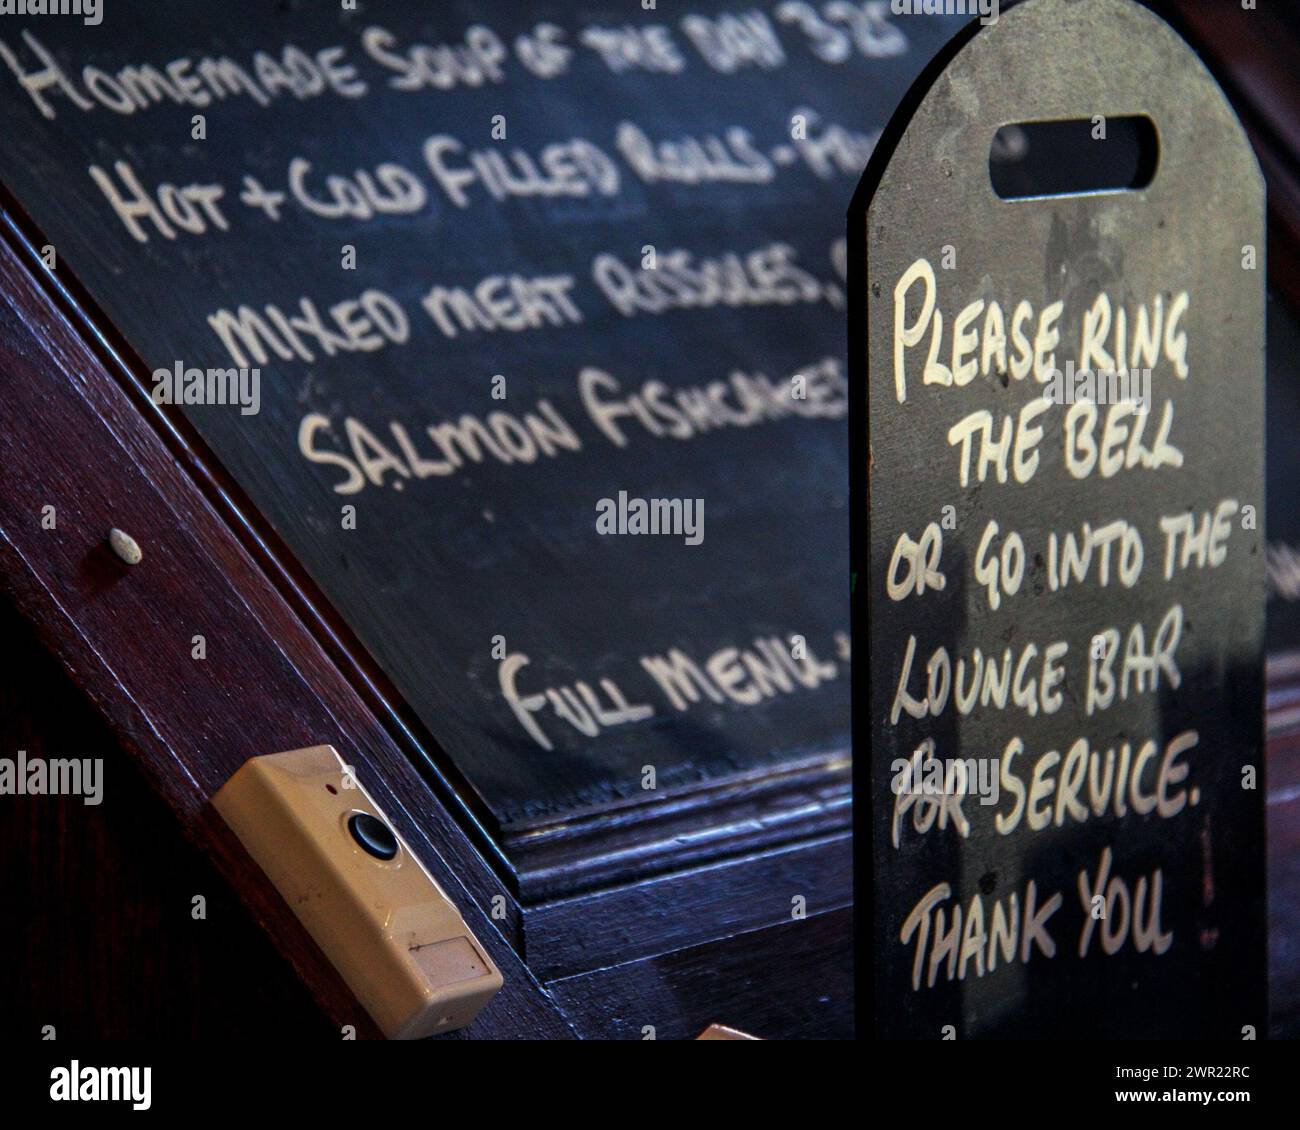 HOMEMADE SOUP OF THE DAY 3.25
HOT + COLD FILLED ROLLS -
MIXED MEAT RISSOLES,
SALMON FISHCAKES
FULL MENU
PLEASE RING
THE BELL
OR GO INTO THE
LOUNGE BAR
FOR SERVICE.
THANK YOU !
alamy
Image ID: 2WR22RC
www.alamy.com